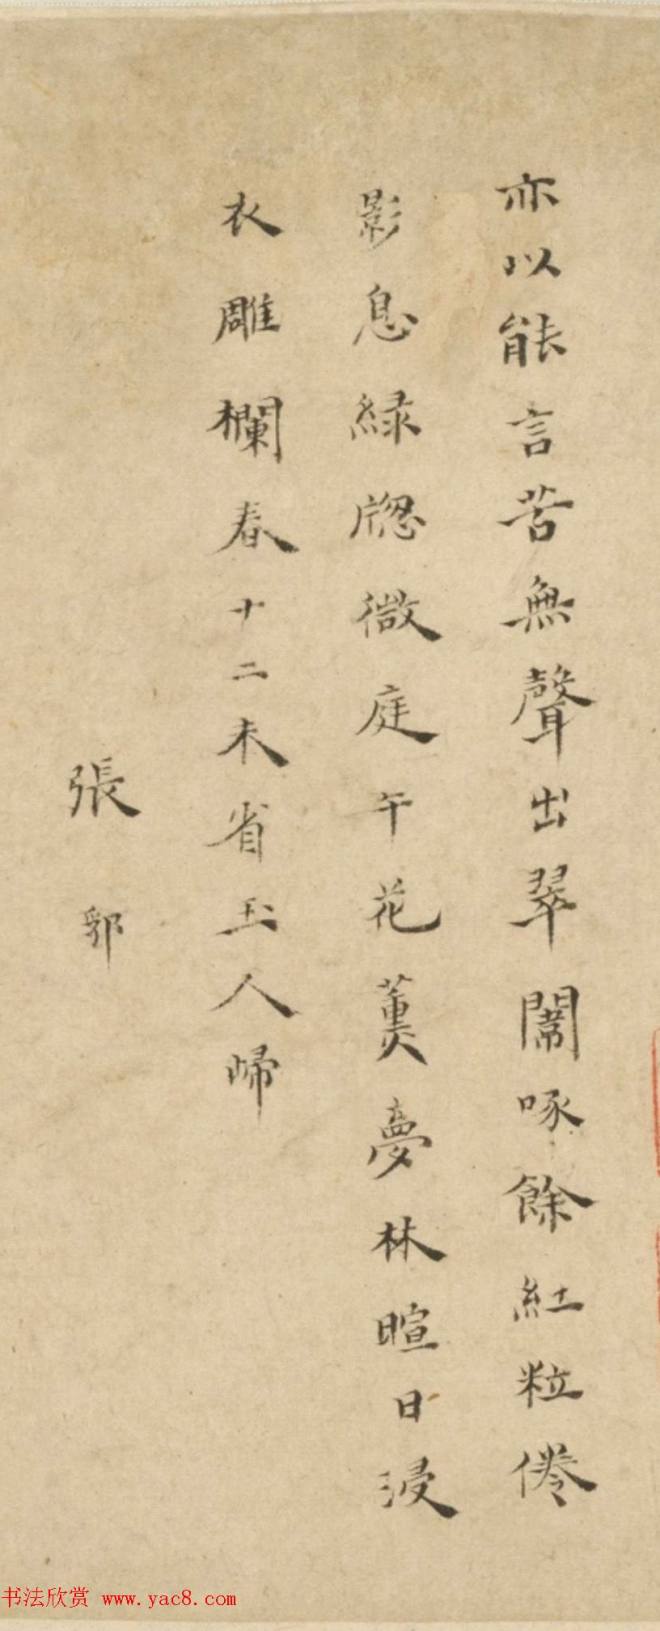 亦以能言苦無聲出翠闈啄餘紅粒倦
影息緑牕微庭午花薰夢林暄日浸
衣雕欄春十二未省玉人歸
張郭
书法欣赏 www.yac8.com